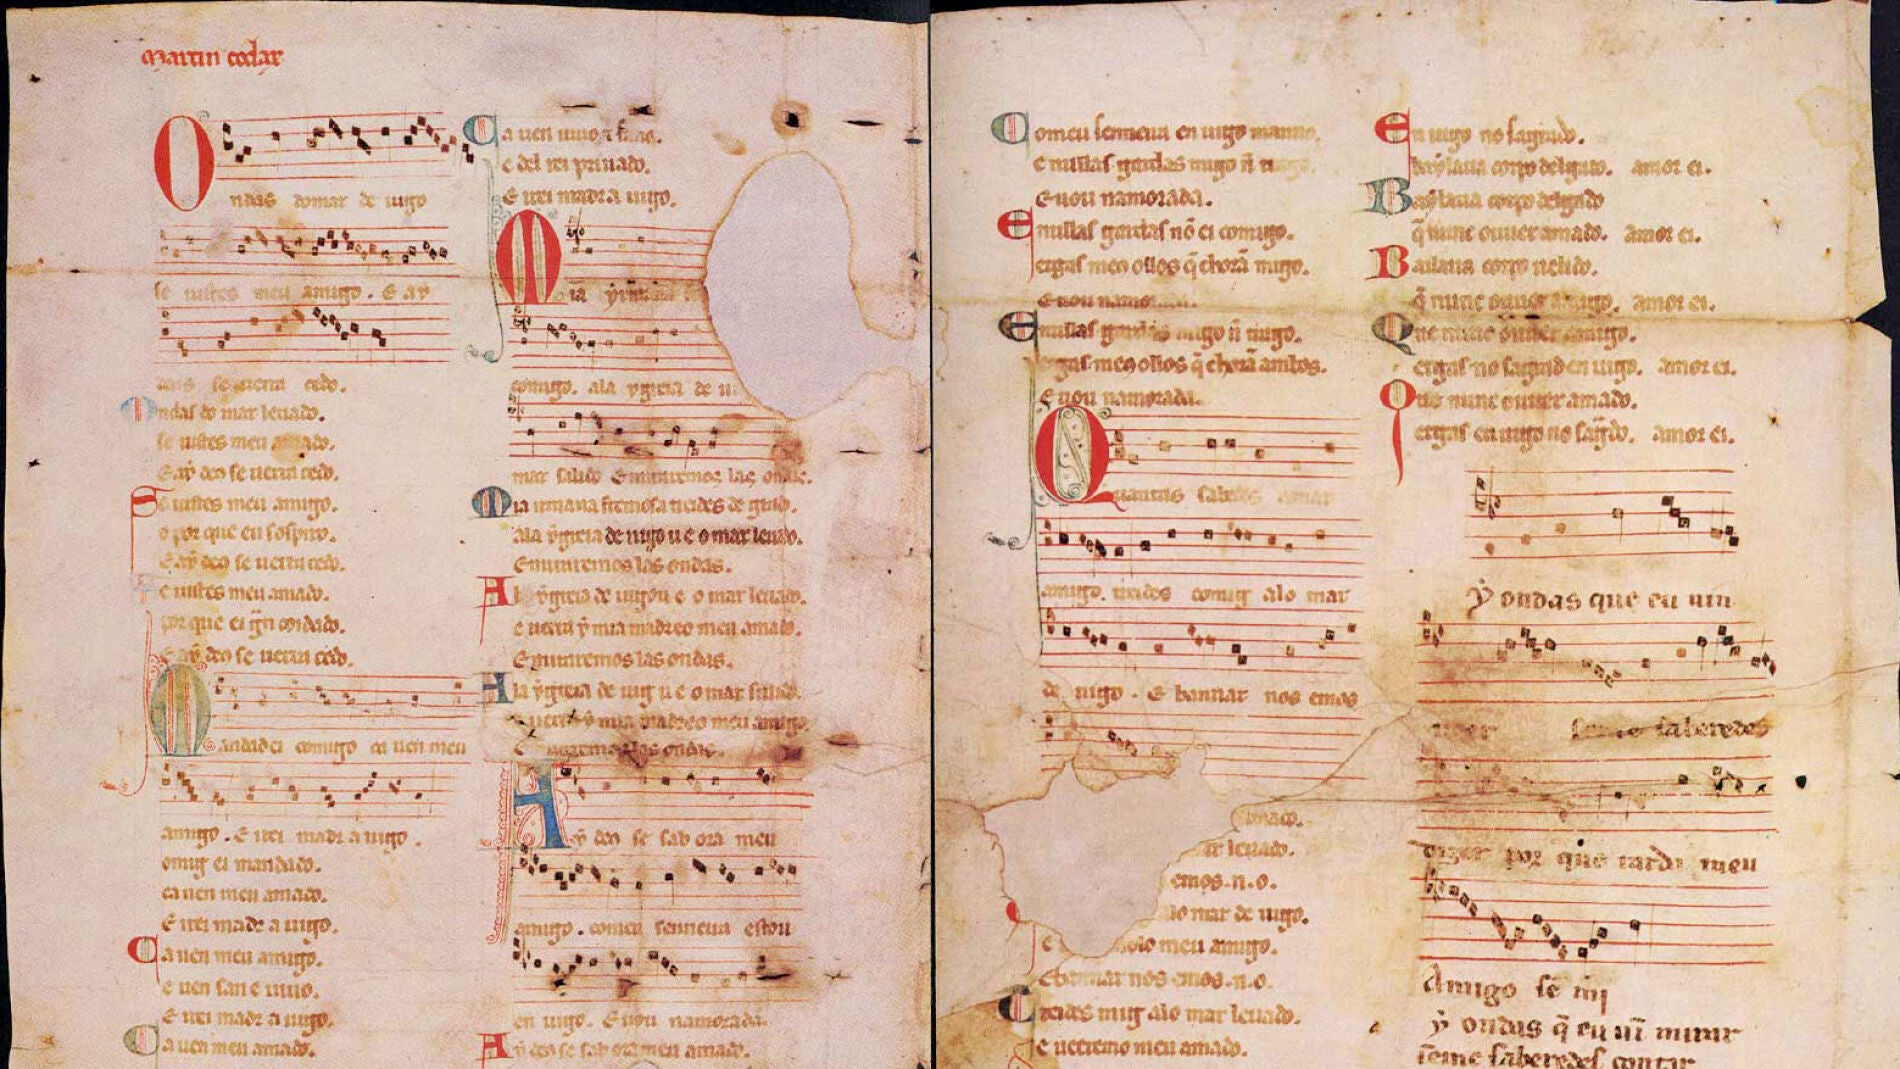 martin codax
Ondas do mar de uigo
se uistes meu amigo. E ay
deus se uerra cedo.
Ondas do mar leuado.
se uistes meu amado.
E ay deo se uerra cedo.
Se uistes meu amigo.
o por que eu sospiro.
E ay deo se uerra cedo.
Se uistes meu amado.
por que ei gñ coidado.
E ay deo se uerra cedo.
Mandad ei comigo ca uen meu
amigo. E irei madr a uigo.
omig ei mandado.
ca uen meu amado.
E irei madr a uigo.
Ca uen meu amigo.
e uen san e uiuo.
E irei madr a uigo.
Ca uen meu amado.
Ca uen uiuo e sano.
e del rei priuado.
E irei madr a uigo.
Mia yrmana
comigo. ala ygreia de u
mar salido E miraremos las ondas.
Mia irmana fremosa treides de grado.
ala ygreia de uigo u e o mar leuado.
E miraremos las ondas.
A la ygreia de uigo u e o mar leuado.
e uerra y mia madre o meu amado.
E miraremos las ondas.
A la ygreia de uig u e o mar salido.
e uerra y mia madre o meu amigo
E miraremos las ondas.
Ay deo se sab ora meu
amigo. comeu senneira estou
en uigo. E uou namorada.
Ay deo se sab ora meu amado.
Comeu senneira en uigo manno.
e nullas gardas migo ñ
E uou namorada.
E nullas gardas nõ ei comigo.
ergas meo ollos q̃ chorã migo.
E uou namorada.
E nullas gardas migo ñ trago.
ergas meo ollos q̃ chorã ambos.
E uou namorada.
Quantas sabedes amar
amigo. treides comig alo mar
de uigo. E bannar nos emos
ar leuado.
emos.n.o.
lo mar de uigo.
e olo meu amigo.
E bannar nos emos.n.o.
Treides mig alo mar leuado.
e ueeremo meu amado.
En uigo no sagrado.
baylaua corpo delgado. amor ei.
Baylaua corpo delgado
q̃ nunc ouuer amado. amor ei.
Bailaua corpo uelido.
q̃ nunc ouuer amigo. amor ei.
Que nunc ouuer amigo.
ergas no sagrad en uigo. amor ei.
Que nunc ouuer amado.
ergas en uigo no sagrado. amor ei.
y ondas que eu uin
ueer se me saberedes
dizer por que tarda meu
Amigo se mj
y ondas q̃ eu uĩ mirar
se me saberedes contar